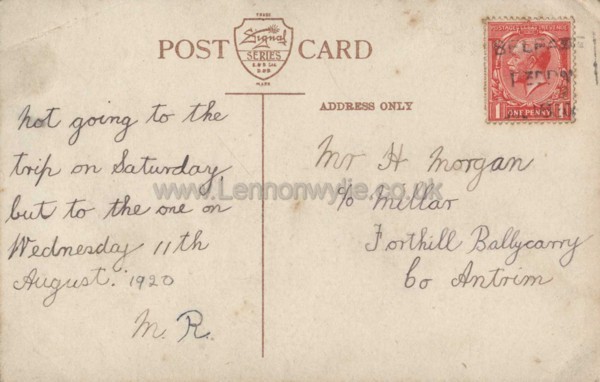 TRADE
POST CARD
Signal
SERIES
E & S Ltd.
D & B
MARK
ADDRESS ONLY
POSTAGE REVENUE
1 ONE PENNY 1
BELFAST
not going to the
trip on Saturday,
but to the one on
Wednesday 11th
August. 1920
M. R.
Mr H Morgan
c/o Millar
Forthill Ballycarry
Co Antrim
www.Lennonwylie.co.uk